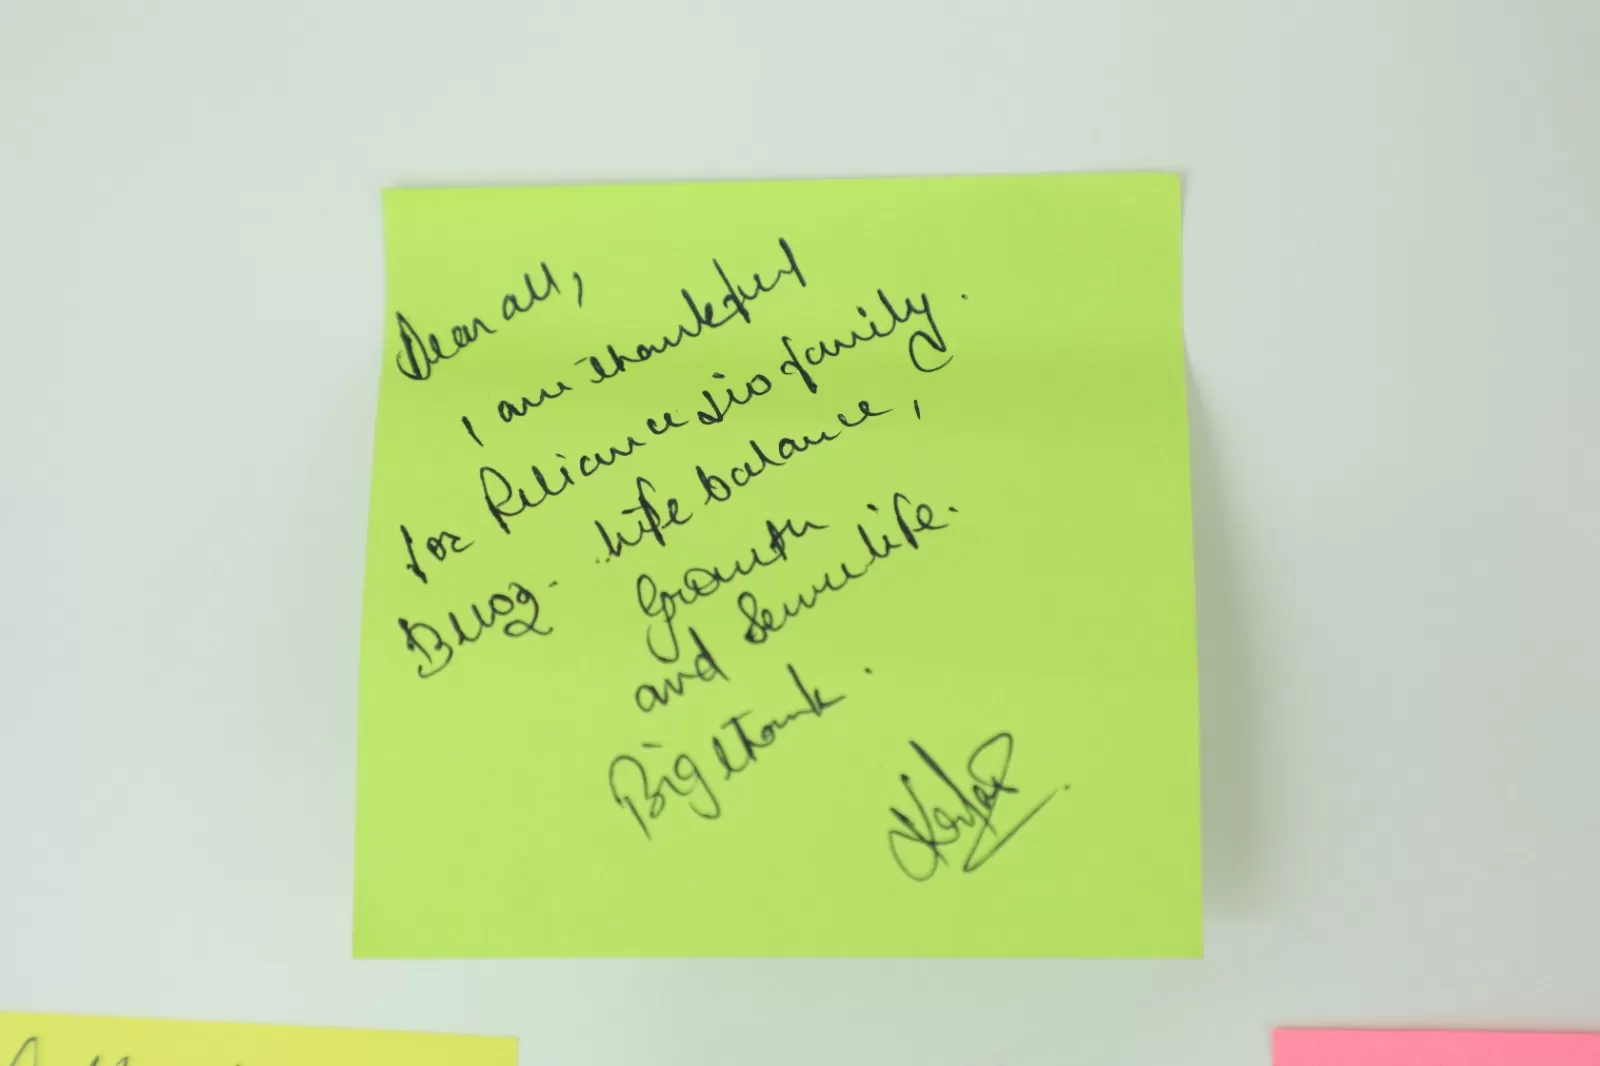 Dear all,
I am thankful
for Reliance Jio family.
life balance,
Growth
and Secure life.
Big thank.